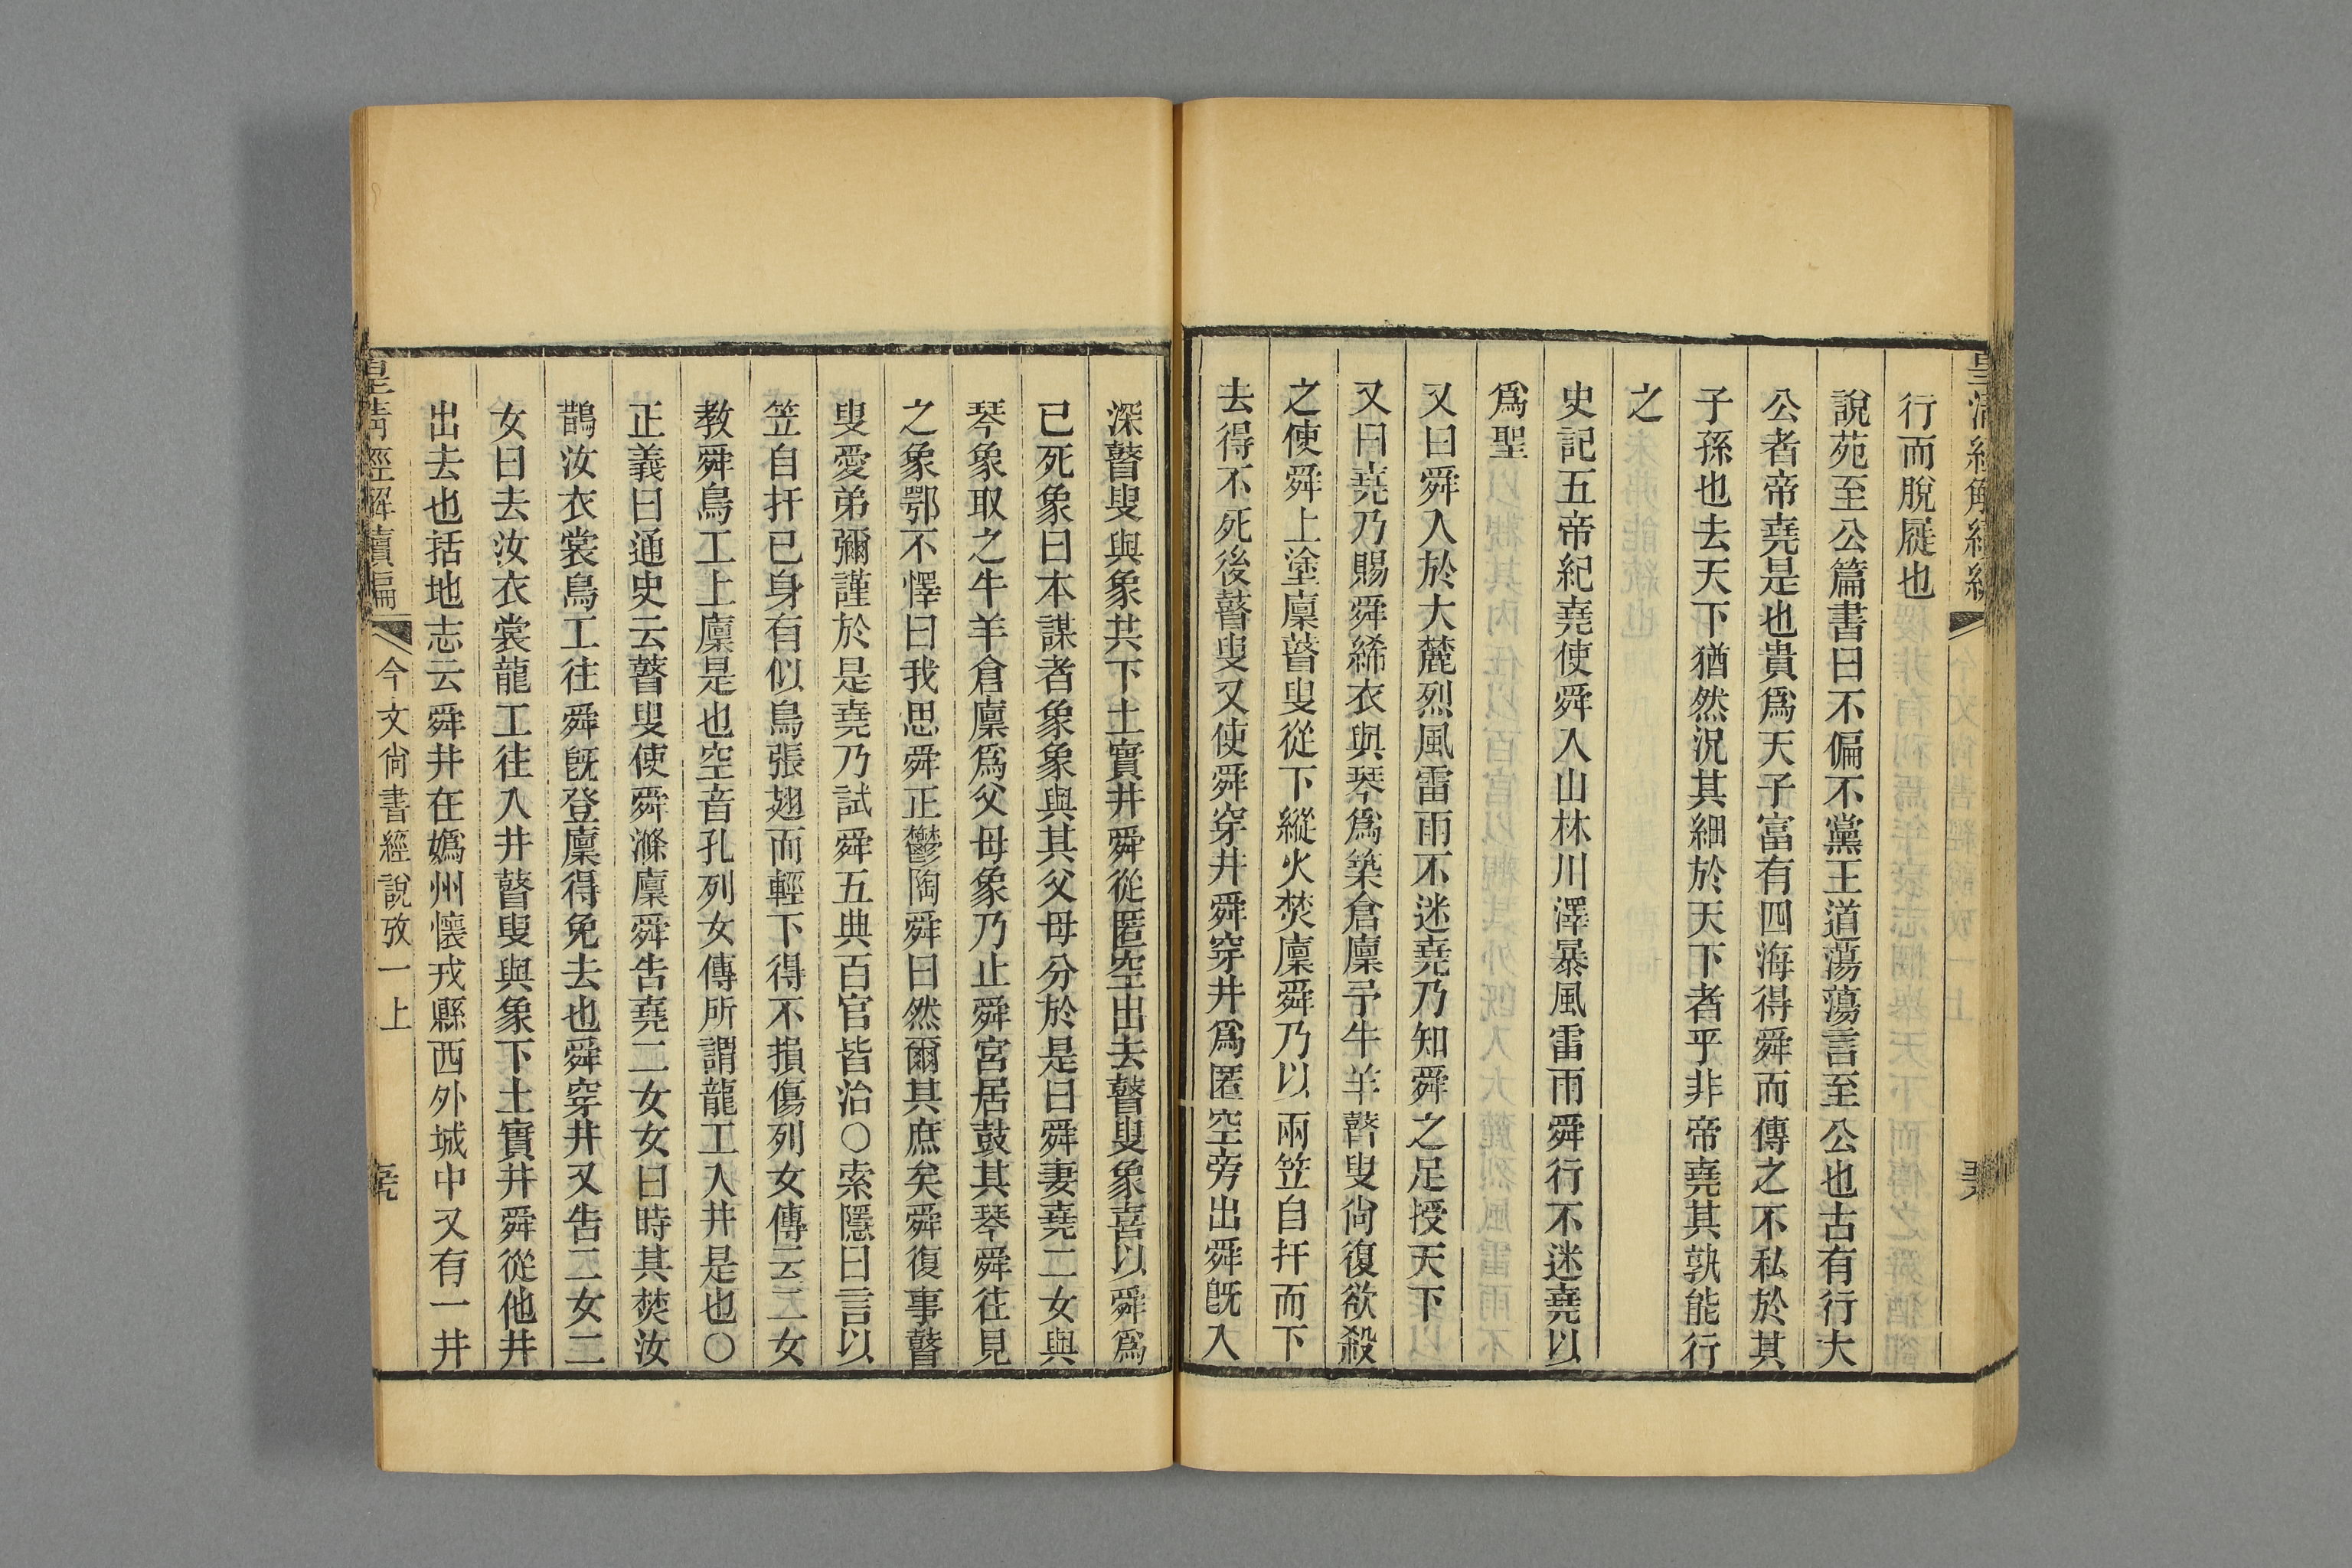 行而脫屣也
說苑至公篇書曰不偏不黨王道蕩蕩言至公也古有行大
公者帝堯是也貴爲天子富有四海得舜而傳之不私於其
子孫也去天下猶然況其細於天下者乎非帝堯其孰能行
之
史記五帝紀堯使舜入山林川澤暴風雷雨舜行不迷堯以
爲聖
又曰舜入於大麓烈風雷雨不迷堯乃知舜之足授天下
又曰堯乃賜舜絺衣與琴爲築倉廩予牛羊瞽叟尙復欲殺
之使舜上塗廩瞽叟從下縱火焚廩舜乃以兩笠自扞而下
去得不死後瞽叟又使舜穿井舜穿井爲匿空旁出舜旣入
深瞽叟與象共下土實井舜從匿空出去瞽叟象喜以舜爲
已死象曰本謀者象象與其父母分於是曰舜妻堯二女與
琴象取之牛羊倉廩爲父母象乃止舜宮居鼓其琴舜往見
之象鄂不懌曰我思舜正鬱陶舜曰然爾其庶矣舜復事瞽
叟愛弟彌謹於是堯乃試舜五典百官皆治○索隱曰言以
笠自扞已身有似鳥張翅而輕下得不損傷列女傳云二女
教舜鳥工上廩是也空音孔列女傳所謂龍工入井是也○
正義曰通史云瞽叟使舜滌廩舜告堯二女女曰時其焚汝
鵲汝衣裳鳥工往舜旣登廩得免去也舜穿井又告二女二
女曰去汝衣裳龍工往入井瞽叟與象下土實井舜從他井
出去也括地志云舜井在嬀州懷戎縣西外城中又有一井
皇清經解續編
今文尙書經說攷一上